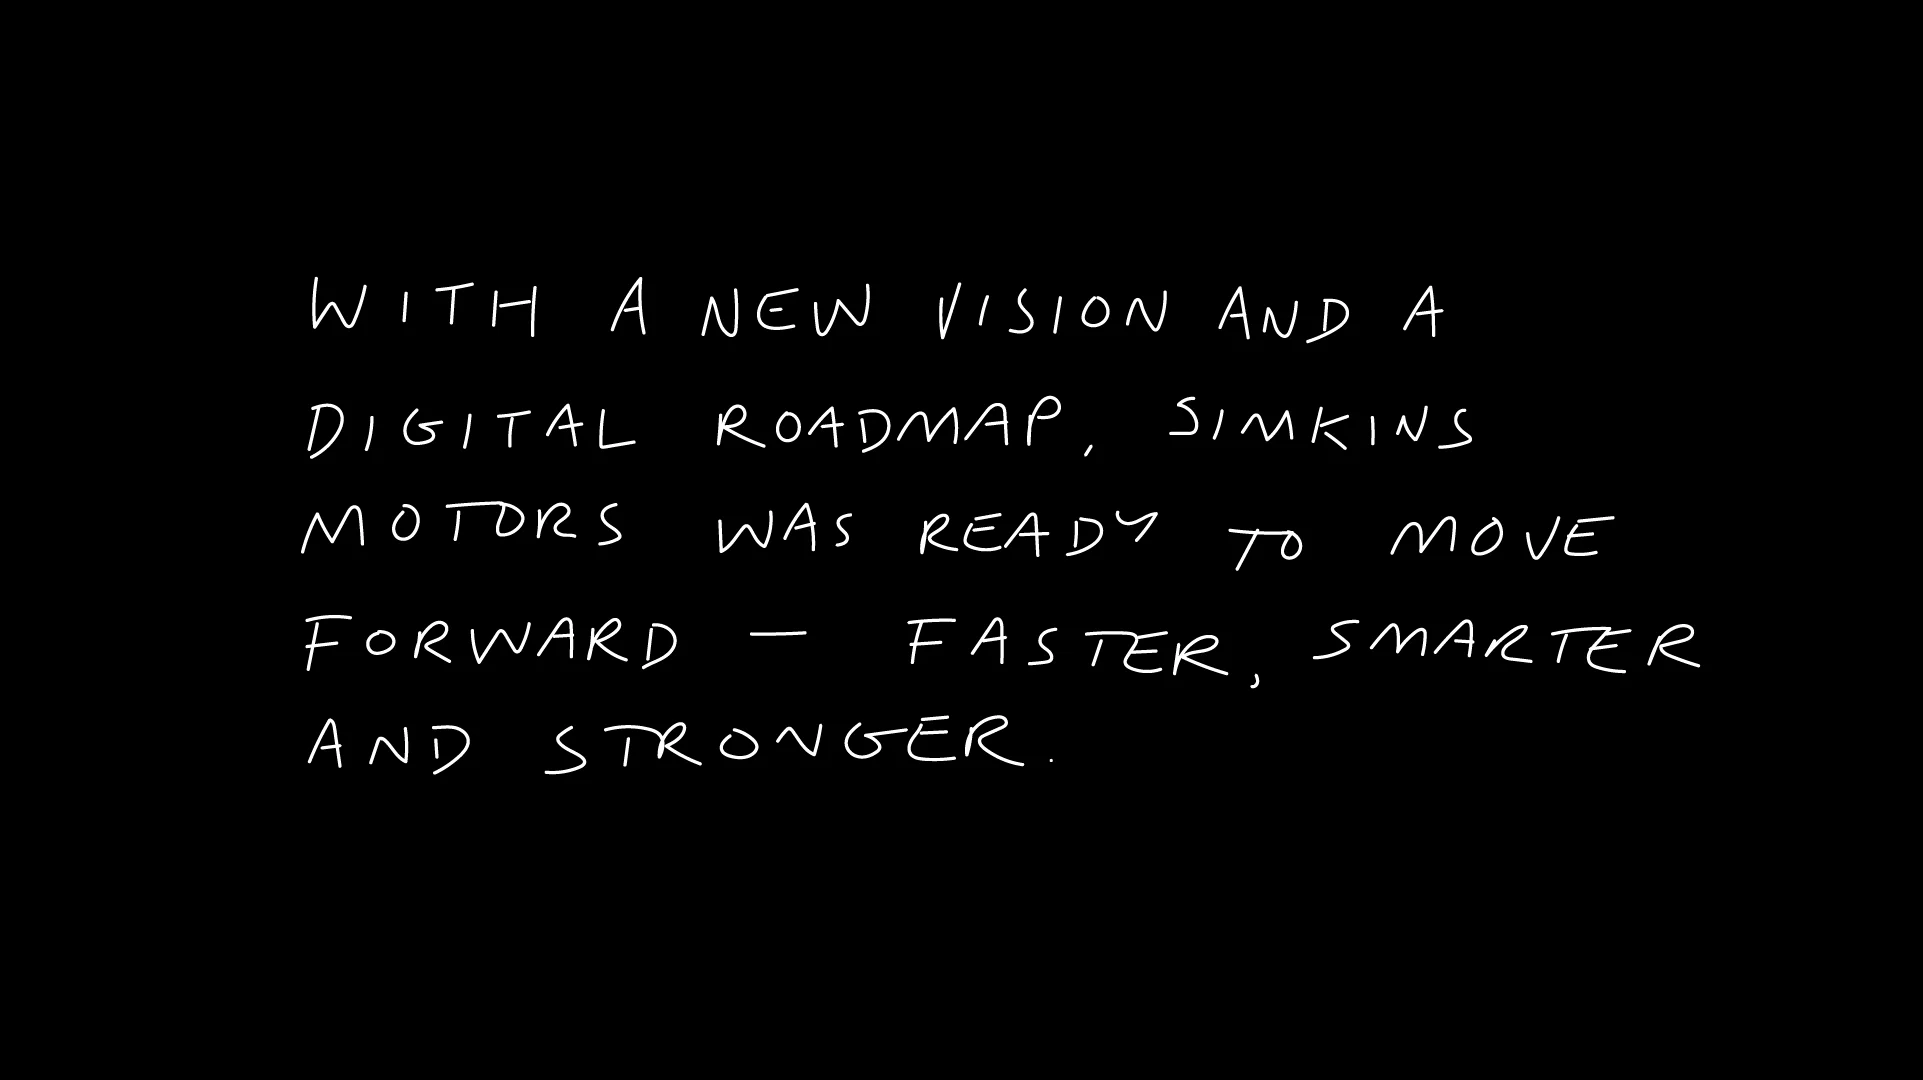 WITH A NEW VISION AND A
DIGITAL ROADMAP, SIMKINS
MOTORS WAS READY TO MOVE
FORWARD — FASTER, SMARTER
AND STRONGER.